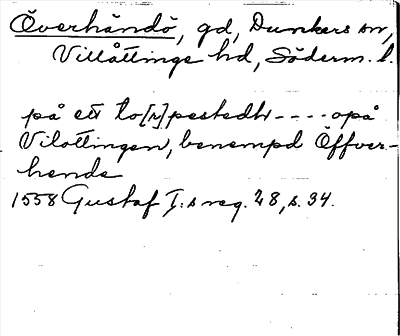 Överhändö, gd, Dunkers sn,
Villåttinge hd, Söderm. l.
på ett to[r]pestedh - - - - opå
Vilottingen, benempd Öffver-
hende
1558 Gustaf I:s reg. 28, s. 34.